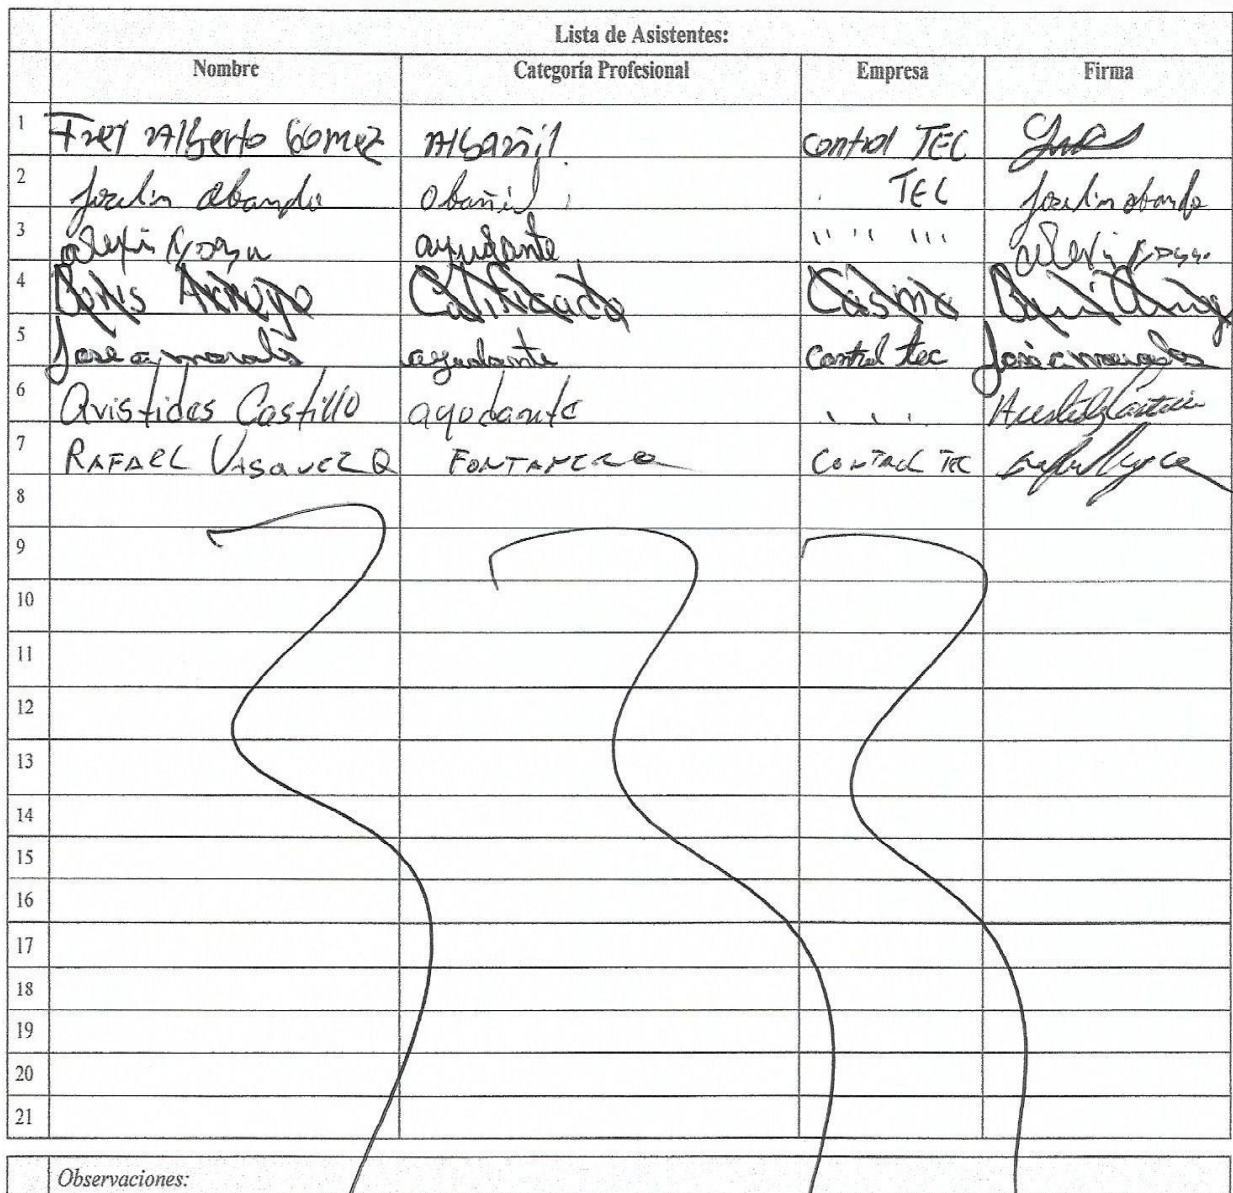 Lista de Asistentes:
Nombre Categoría Profesional Empresa Firma
1 Fred Alberto Gomez Albañil control TEC
2 Joselin Obando Obañil TEC Joselin obando
3 alexis ayudante '' '' ''' alexis
4 Boris Arroyo Calificado Casmo Boris Arroyo
5 Jose a morales ayudante Control tec Jose a morales
6 Aristides Castillo ayodante ' ' ' Aristides Castillo
7 RAFAEL VASQUEZ Q FONTANERO CONTROL TEC
8
9
10
11
12
13
14
15
16
17
18
19
20
21
Observaciones: